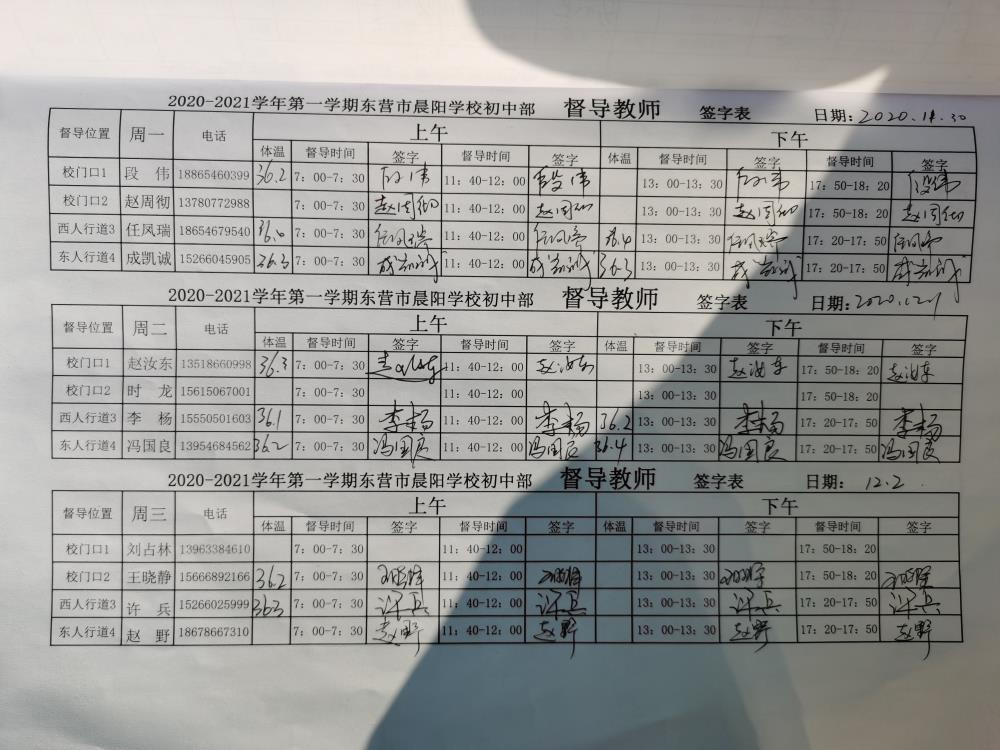 2020-2021学年第一学期东营市晨阳学校初中部 督导教师 签字表 日期: 2020.11.30
督导位置 周一 电话 上午 下午
体温 督导时间 签字 督导时间 签字 体温 督导时间 签字 督导时间 签字
校门口1 段 伟 18865460399 36.2 7: 00-7: 30 段伟 11: 40-12: 00 段伟 13: 00-13: 30 段伟 17: 50-18: 20 段伟
校门口2 赵周彻 13780772988 7: 00-7: 30 赵周彻 11: 40-12: 00 赵周彻 13: 00-13: 30 赵周彻 17: 50-18: 20 赵周彻
西人行道3 任凤瑞 18654679540 36.0 7: 00-7: 30 任凤瑞 11: 40-12: 00 任凤瑞 36.4 13: 00-13: 30 任凤瑞 17: 20-17: 50 任凤瑞
东人行道4 成凯诚 15266045905 36.3 7: 00-7: 30 成凯诚 11: 40-12: 00 成凯诚 36.3 13: 00-13: 30 成凯诚 17: 20-17: 50 成凯诚
2020-2021学年第一学期东营市晨阳学校初中部 督导教师 签字表 日期: 2020.12.1
督导位置 周二 电话 上午 下午
体温 督导时间 签字 督导时间 签字 体温 督导时间 签字 督导时间 签字
校门口1 赵汝东 13518660998 36.3 7: 00-7: 30 赵汝东 11: 40-12: 00 赵汝东 13: 00-13: 30 赵汝东 17: 50-18: 20 赵汝东
校门口2 时 龙 15615067001 7: 00-7: 30 11: 40-12: 00 13: 00-13: 30 17: 50-18: 20
西人行道3 李 杨 15550501603 36.1 7: 00-7: 30 李杨 11: 40-12: 00 李杨 36.2 13: 00-13: 30 李杨 17: 20-17: 50 李杨
东人行道4 冯国良 13954684562 36.2 7: 00-7: 30 冯国良 11: 40-12: 00 冯国良 36.4 13: 00-13: 30 冯国良 17: 20-17: 50 冯国良
2020-2021学年第一学期东营市晨阳学校初中部 督导教师 签字表 日期: 12.2
督导位置 周三 电话 上午 下午
体温 督导时间 签字 督导时间 签字 体温 督导时间 签字 督导时间 签字
校门口1 刘占林 13963384610 7: 00-7: 30 11: 40-12: 00 13: 00-13: 30 17: 50-18: 20
校门口2 王晓静 15666892166 36.2 7: 00-7: 30 王晓静 11: 40-12: 00 王晓静 13: 00-13: 30 王晓静 17: 50-18: 20 王晓静
西人行道3 许 兵 15266025999 36.3 7: 00-7: 30 许兵 11: 40-12: 00 许兵 13: 00-13: 30 许兵 17: 20-17: 50 许兵
东人行道4 赵 野 18678667310 7: 00-7: 30 赵野 11: 40-12: 00 赵野 13: 00-13: 30 赵野 17: 20-17: 50 赵野